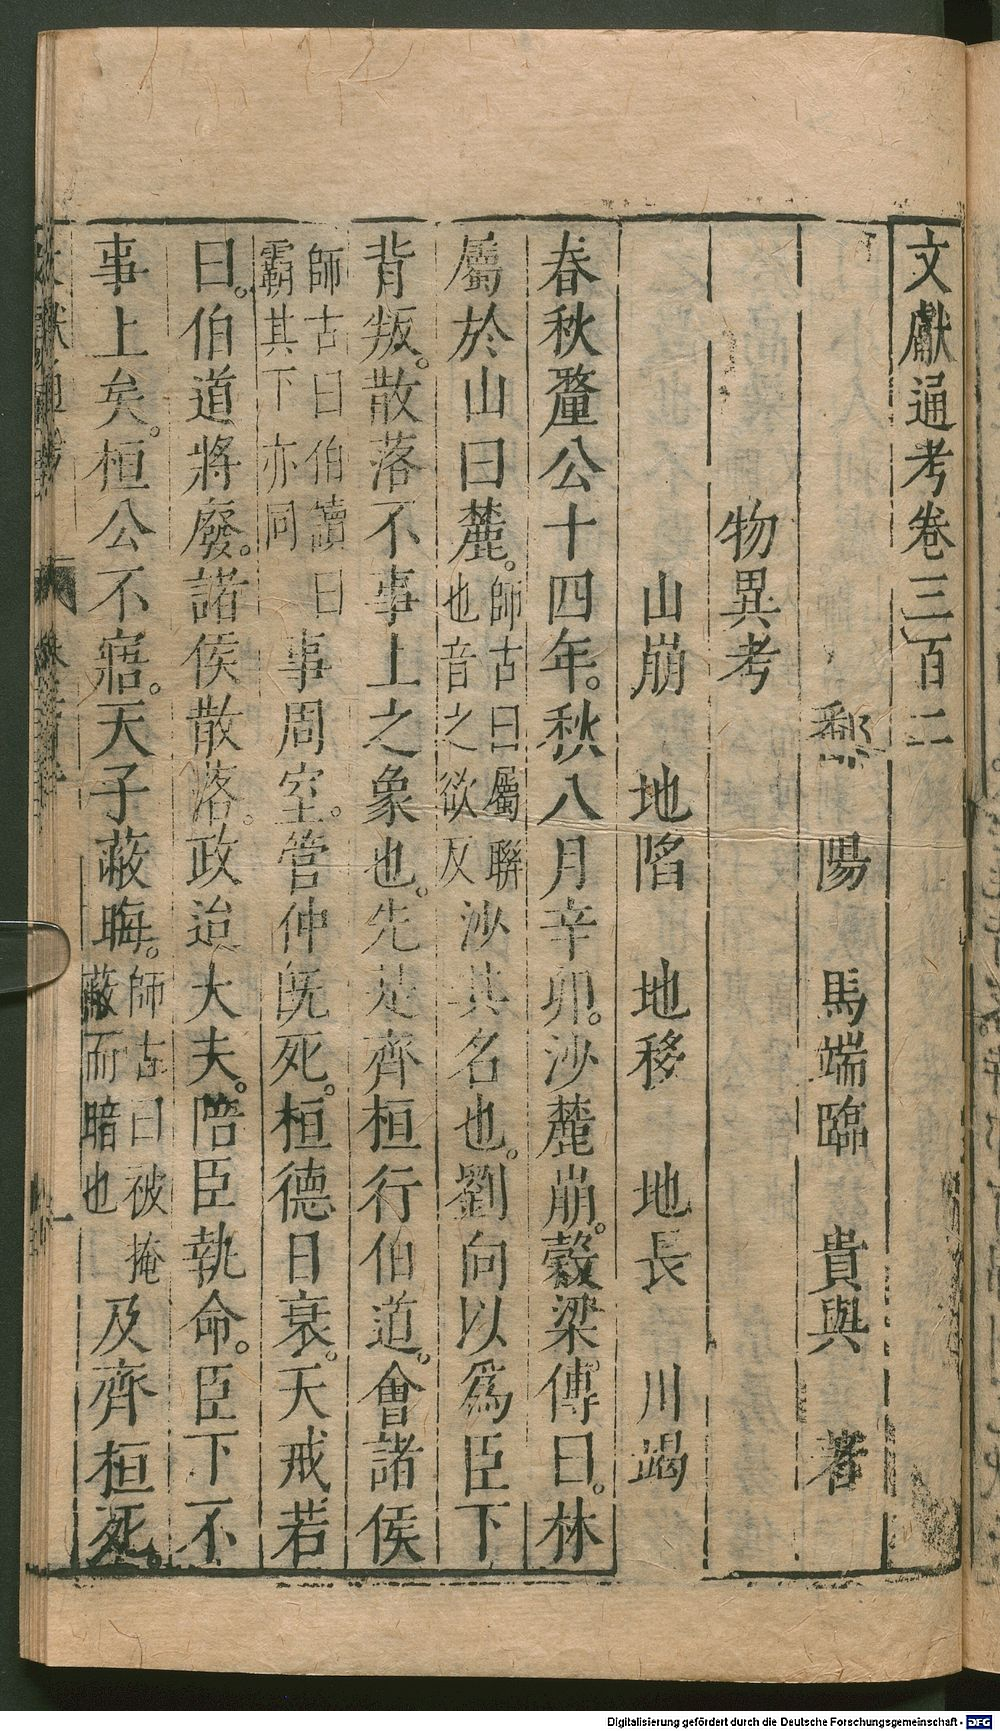 文獻通考卷三百二
鄱陽 馬端臨 貴與 著
物異考
山崩 地陷 地移 地長 川竭
春秋釐公十四年。秋八月辛卯。沙麓崩。穀梁傳曰。林
屬於山曰麓。師古曰屬聯也音之欲反沙其名也。劉向以爲臣下
背叛。散落不事上之象也。先是齊桓行伯道。會諸侯
師古曰伯讀曰霸其下亦同事周室。管仲既死。桓德日衰。天戒若
曰。伯道將廢。諸侯散落。政迨大夫。陪臣執命。臣下不
事上矣。桓公不寤。天子蔽晦。師古曰被掩蔽而暗也及齊桓死。
Digitalisierung gefördert durch die Deutsche Forschungsgemeinschaft - DFG